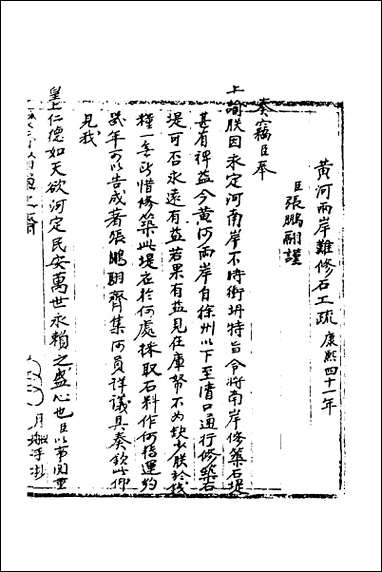 黃河兩岸難修石工疏 康熙四十一年
臣張鵬翮謹
奏竊臣奉
上諭朕因永定河南岸不時衝坍特旨令將南岸修築石堤
甚有裨益今黃河兩岸自徐州以下至清口通行修築石
堤可否永遠有益若果有益見在庫帑不為缺少朕於錢
糧一無所惜修築此堤應於何處採取石料作何搭運約
幾年可以告成著張鵬翮齊集河員詳議具奏欽此仰
見我
皇上仁德如天欲河定民安萬世永賴之盛心也臣以事関重